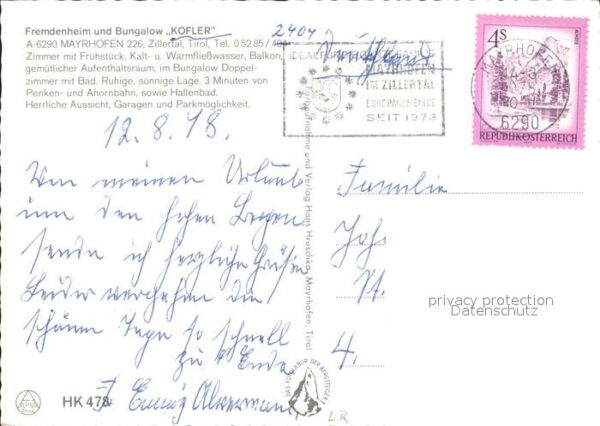 Fremdenheim und Bungalow „KOFLER"
A-6290 MAYRHOFEN 226, Zillertal, Tirol, Tel. 0 52 85 /
Zimmer mit Frühstück, Kalt- u. Warmfließwasser, Balkon,
gemütlicher Aufenthaltsraum, im Bungalow Doppel-
zimmer mit Bad. Ruhige, sonnige Lage. 3 Minuten von
Penken- und Ahornbahn, sowie Hallenbad.
Herrliche Aussicht, Garagen und Parkmöglichkeit.
2404
Deutschland
MAYRHOFEN
IM ZILLERTAL
EUROPAGEMEINDE
SEIT 1973
MAYRHOFEN
6290
4S
REPUBLIK ÖSTERREICH
12. 8. 78.
Von meinen Urlaub
inn den hohen Bergen
sende ich herzliche Grüße
Leider vergehen die
schönen Tage so schnell
zu Ende
Familie
Joh.
St.
4.
privacy protection
Datenschutz
und Verlag Hans Hruschka, Mayrhofen, Tirol
HK 478
LR